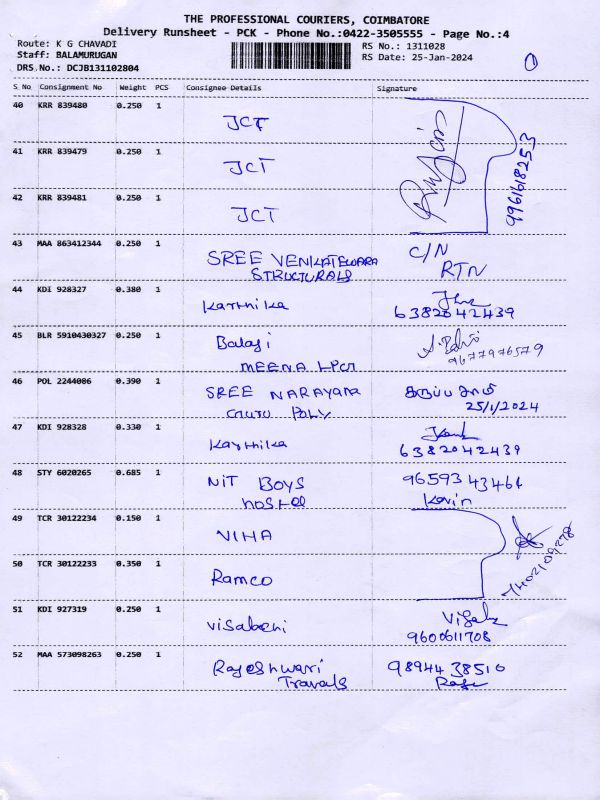 THE PROFESSIONAL COURIERS, COIMBATORE
Delivery Runsheet - PCK - Phone No.:0422-3505555 - Page No.:4
Route: K G CHAVADI
RS No.: 1311028
Staff: BALAMURUGAN
RS Date: 25-Jan-2024
DRS No.: DCJB131102804
1
S No Consignment No Weight PCS Consignee Details Signature
40 KRR 839480 0.250 1
JCT
41 KRR 839479 0.250 1
JCT
9961618253
42 KRR 839481 0.250 1
JCT
43 MAA 863412344 0.250 1
SREE VENKATESWARA C/N
STRUCTURALS RTN
44 KDI 928327 0.380 1
Karthika
6382042439
45 BLR 5910430327 0.250 1
Balaji
MEENA
9677976579
46 POL 2244086 0.390 1
SREE NARAYANA கருப்பசாமி
POLY 25/1/2024
47 KDI 928328 0.330 1
Karthika
6382042439
48 STY 6020265 0.685 1
NIT BOYS 96593 43464
hostel Kavin
49 TCR 30122234 0.150 1
VIHA
50 TCR 30122233 0.350 1
Ramco
51 KDI 927319 0.250 1
Visalachi
9600611708
52 MAA 573098263 0.250 1
Rajeshwari 98944 38510
Travals